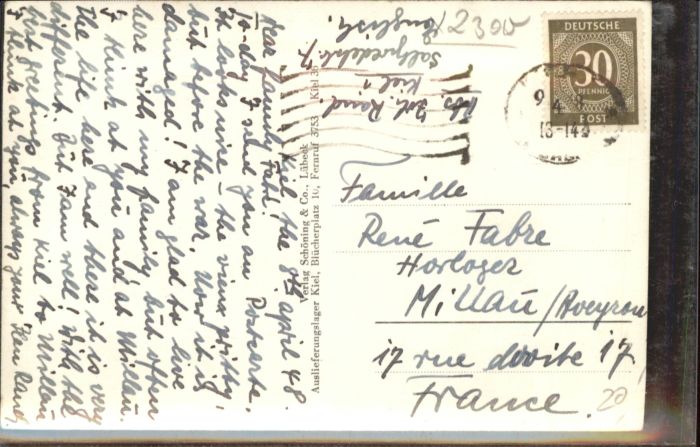 Kiel, the 8th april 48.
Dear famili Fabre.
To-day I send you an Postcarte.
It looks nice - the view pritty,
but before the war. Now it is
damaged! I am glad to live
here with my family but often
I think at you and at Millau.
The life here and there it is very
different. But I am well! With the
best greetings from Kiel to Millau
I think at you, always your
Verlag Schöning & Co., Lübeck
Auslieferungslager Kiel, Blücherplatz 10, Fernruf 3753 Kiel
Abs.
Kiel
English.
2300
DEUTSCHE
30
PFENNIG
POST
13-14
Famille
René Fabre
Horloger
Millau/Aveyron
17 rue droite 17
France.
20